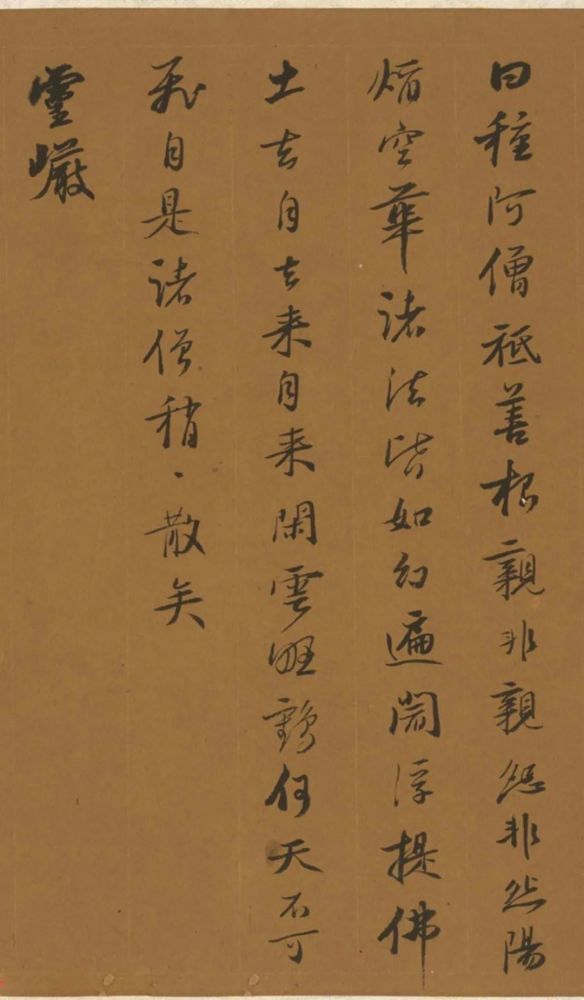 曰種阿僧祇善根親非親怨非怨陽
焰空華諸法皆如幻遍閻浮提佛
土去自去来自来閑雲野鶴何天不可
飛自是諸僧稍、散矣
靈巗